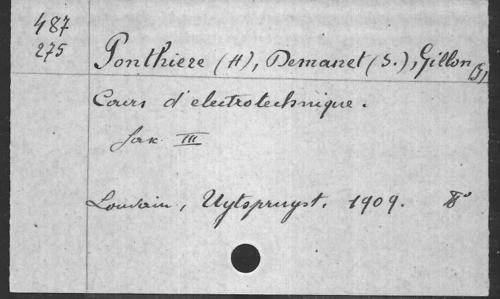 487
275
Ponthiere (H), Demanet (S.), Gillon (G)
Cours d'electrotechnique.
fasc III
Louvain, Uytspruyst. 1909. 8°